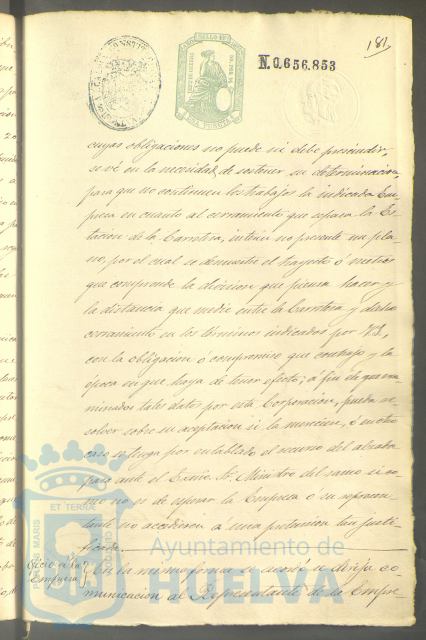 181
N.0.656.853
cuyas obligaciones no puede ni debe prescindir,
se vé en la necesidad de sostener su determinacion,
para que no continuen los trabajos la indicada Em-
presa en cuanto al cerramiento que separa la Es-
tacion de la Carretera, interin no presente un pla-
no, por el cual se demuestre el trayecto ó metros
que comprende la division que piensa hacer y
la distancia que medie entre la Carretera y dicho
cerramiento en los términos indicados por VS,
con la obligacion ó compromiso que contrajo y la
época en que haya de tener efecto; á fin de que exa-
minados tales datos por esta Corporacion, pueda re-
solver sobre su aceptacion si la merecen, ó en otro
caso se tenga por entablado el recurso del alzada
para ante el Excmo. Sr. Ministro del ramo si co-
mo no es de esperar la Empresa o su represen-
tante no accedieran a una pretension tan justi-
ficada.
Oficio á la
Empresa
En la misma forma se acordó se dirija co-
municacion al Representante de la Empre-
ET TERRÆ
PORTUS MARIS
CUSTODIA
Ayuntamiento de
HUELVA